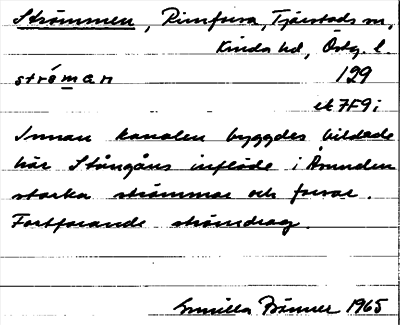 Strömmen, Rimforsa, Tjärstads sn,
Kinda hd, Östg. l.
strö́man 129
ek 7F9i
Innan kanalen byggdes bildade
här Stångåns inflöde i Åsunden
starka strömmar och forsar.
Fortfarande strömdrag.
Gunilla Brånner 1965